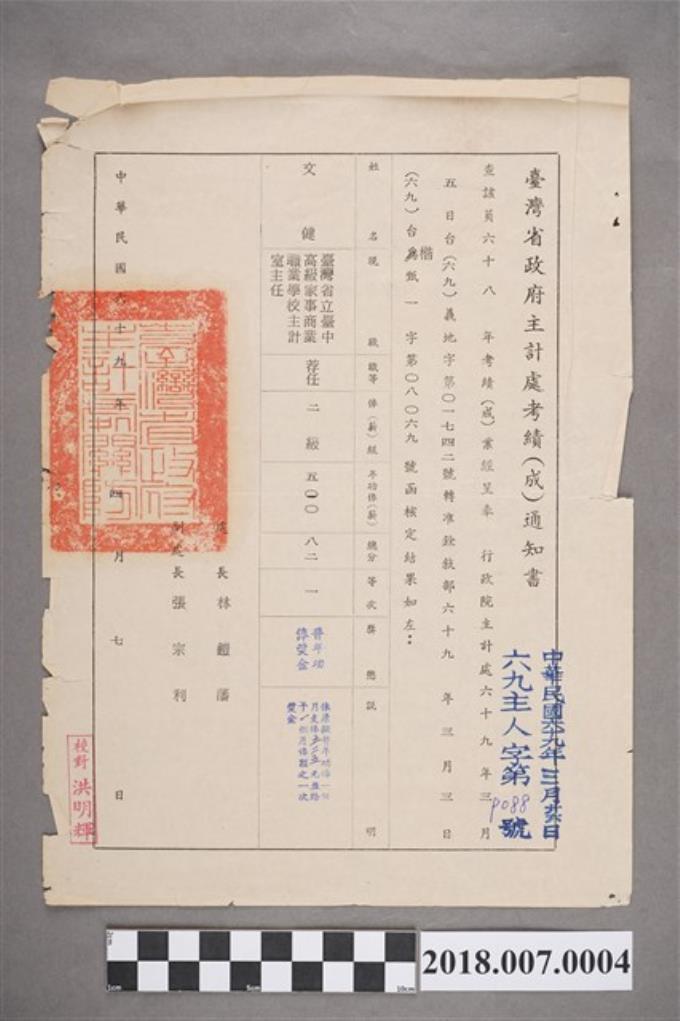 臺灣省政府主計處考績(成)通知書
中華民國六九年三月廿六日
六九主人字第
9088
號
查該員六十八 年考績(成)業經呈奉 行政院主計處六十九 年三月
五日台(六九)義地字第〇一七四二號轉准銓敘部六十九 年三月三日
(六九)台楷甄一字第〇八〇六九 號函核定結果如左：
姓名
現職
職等
俸(薪)級
年功俸(薪)
總分
等次
獎懲
說明
文健
臺灣省立臺中
高級家事商業
職業學校主計
室主任
荐任
二級
五〇〇
八二
一
晉年功
俸獎金
予一個月俸額之一次
獎金
處長 林鎧藩
副處長 張宗利
中華民國六十九年四月七日
臺灣省政府主計處關防
校對 洪明輝
2018.007.0004
1cm
5cm
10cm